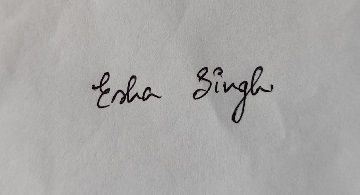 Esha Singh